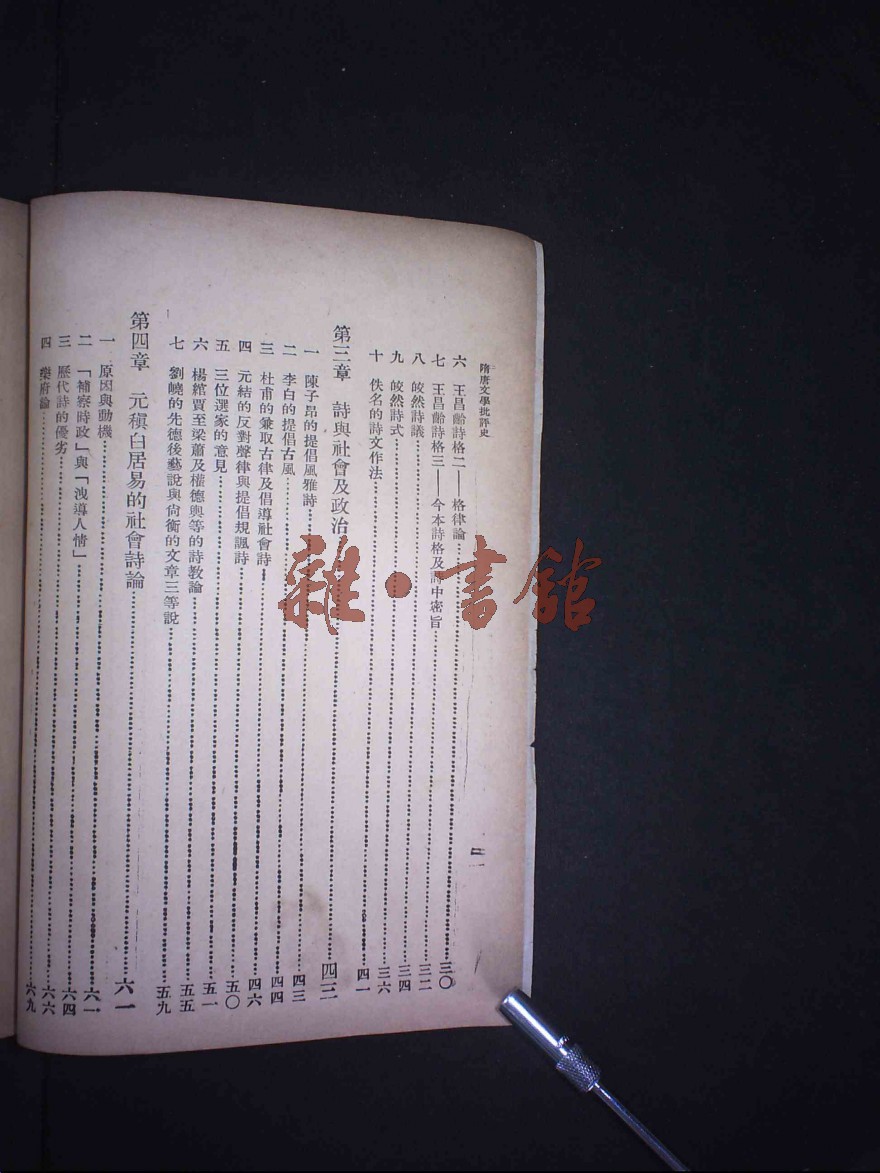 隋唐文學批評史
二
六 王昌齡詩格二——格律論……三〇
七 王昌齡詩格三——今本詩格及詩中密旨……三二
八 皎然詩議……三四
九 皎然詩式……三六
十 佚名的詩文作法……四一
第三章 詩與社會及政治……四二
一 陳子昂的提倡風雅詩……四三
二 李白的提倡古風……四四
三 杜甫的兼取古律及倡導社會詩……四六
四 元結的反對聲律與提倡規諷詩……五〇
五 三位選家的意見……五一
六 楊綰賈至梁蕭及權德輿等的詩教論……五五
七 劉嶢的先德後藝說與尙衡的文章三等說……五九
第四章 元稹白居易的社會詩論……六一
一 原因與動機……六一
二 「補察時政」與「洩導人情」……六四
三 歷代詩的優劣……六六
四 樂府論……六九
雜·書館